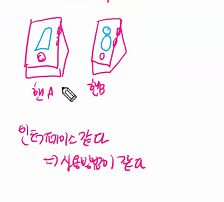 핸A 핸B
인터페이스 같다
=> 사용방법이 같다